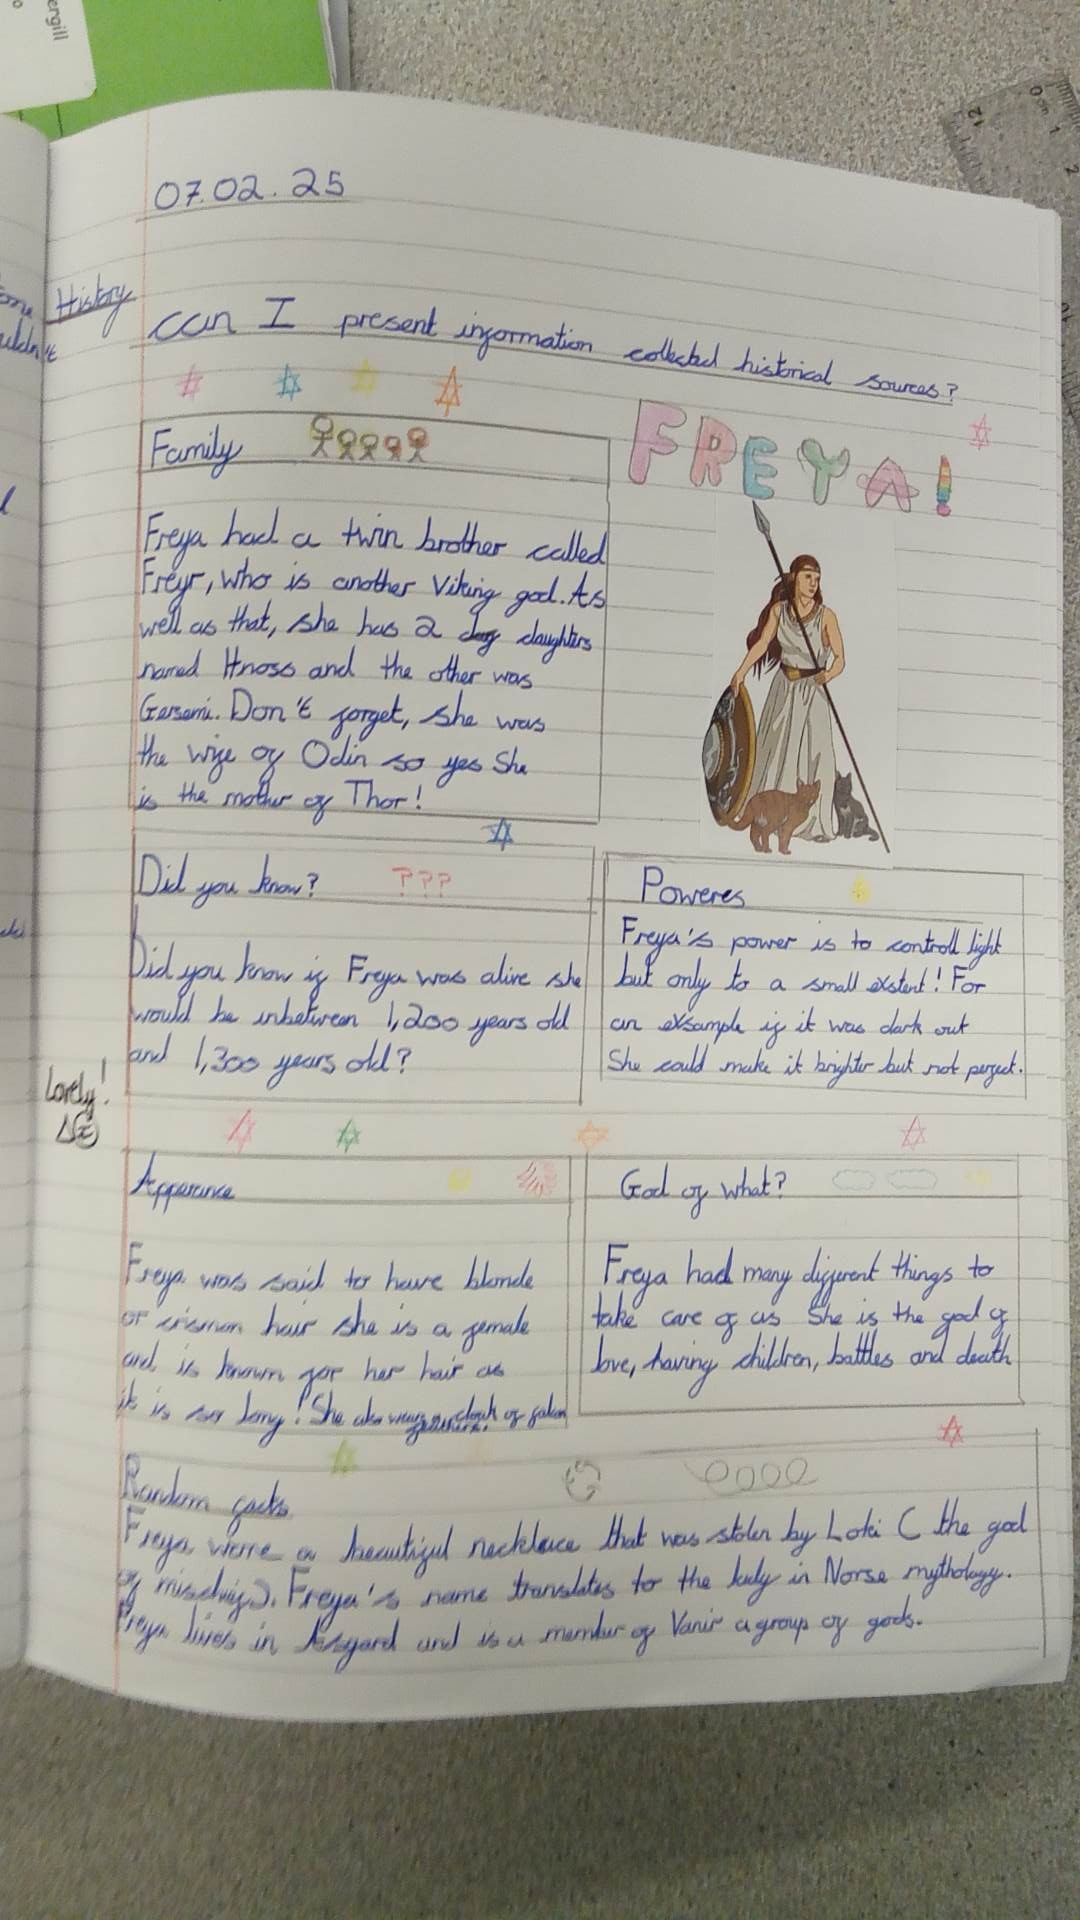 ergill
07.02.25
History
can I present information collected historical sources?
FREYA!
Family
Freya had a twin brother called
Freyr, who is another Viking god. As
well as that, she has 2 daughters
named Hnoss and the other was
Gersemi. Don't forget, she was
the wife of Odin so yes She
is the mother of Thor!
Did you know? ???
Did you know if Freya was alive she
would be inbetween 1,200 years old
and 1,300 years old?
Poweres
Freya's power is to controll light
but only to a small exstent! For
an exsample if it was dark out
She could make it brighter but not perfect.
Lovely!
Apperance
Freya was said to have blonde
or crismon hair she is a female
and is known for her hair as
it is so long! She also wears a cloak of falcon
feathers.
God of what?
Freya had many different things to
take care of as She is the god of
love, having children, battles and death
Random facts
Freya worre a beautiful necklace that was stolen by Loki ( the god
of mischif). Freya's name translates to the lady in Norse mythology.
Freya lives in Asgard and is a member of Vanir a group of gods.
12
0 cm 1 2